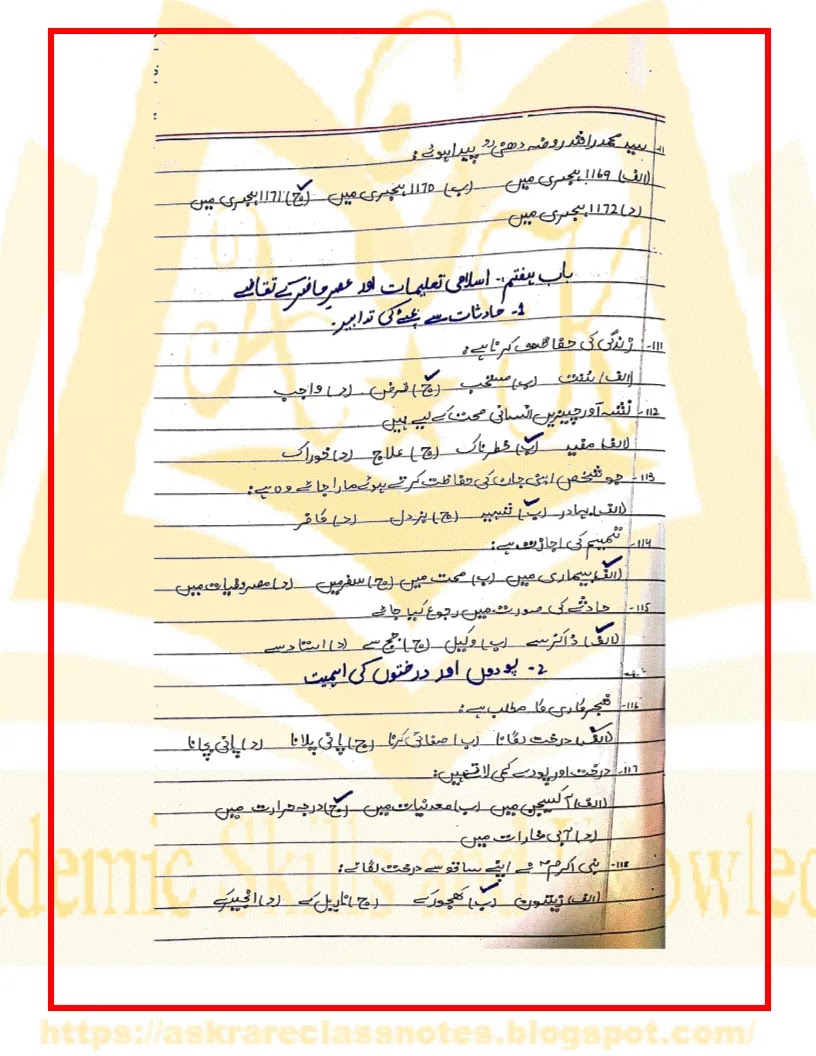 سید محمد راشد روضہ دھنیؒ پیدا ہوئے:
(الف) 1169 ہجری میں (ب) 1170 ہجری میں (ج) 1171 ہجری میں
(د) 1172 ہجری میں
باب ہفتم:- اسلامی تعلیمات اور عصر حاضر کے تقاضے
1- حادثات سے بچنے کی تدابیر:
111- زندگی کی حفاظت کرنا ہے:
(الف) سنت (ب) مستحب (ج) فرض (د) واجب
112- نشہ آور چیزیں انسانی صحت کے لیے ہیں
(الف) مفید (ب) خطرناک (ج) علاج (د) خوراک
113- جو شخص اپنی جان کی حفاظت کرتے ہوئے مارا جائے وہ ہے:
(الف) بہادر (ب) شہید (ج) بزدل (د) کافر
114- تیمم کی اجازت ہے:
(الف) بیماری میں (ب) صحت میں (ج) سفر میں (د) مصروفیات میں
115- حادثے کی صورت میں رجوع کیا جائے
(الف) ڈاکٹر سے (ب) وکیل (ج) جج سے (د) استاد سے
2- پودوں اور درختوں کی اہمیت
116- شجرکاری کا مطلب ہے:
(الف) درخت لگانا (ب) صفائی کرنا (ج) پانی پلانا (د) پانی بچانا
117- درخت اور پودے کمی لاتے ہیں:
(الف) آکسیجن میں (ب) معدنیات میں (ج) درجہ حرارت میں
(د) آبی بخارات میں
118- نبی اکرم ﷺ نے اپنے ساتھ سے درخت لگائے:
(الف) زیتون (ب) کھجور کے (ج) ناریل کے (د) انجیر کے
ademic Skills and Knowled
https://askrareclassnotes.blogspot.com/